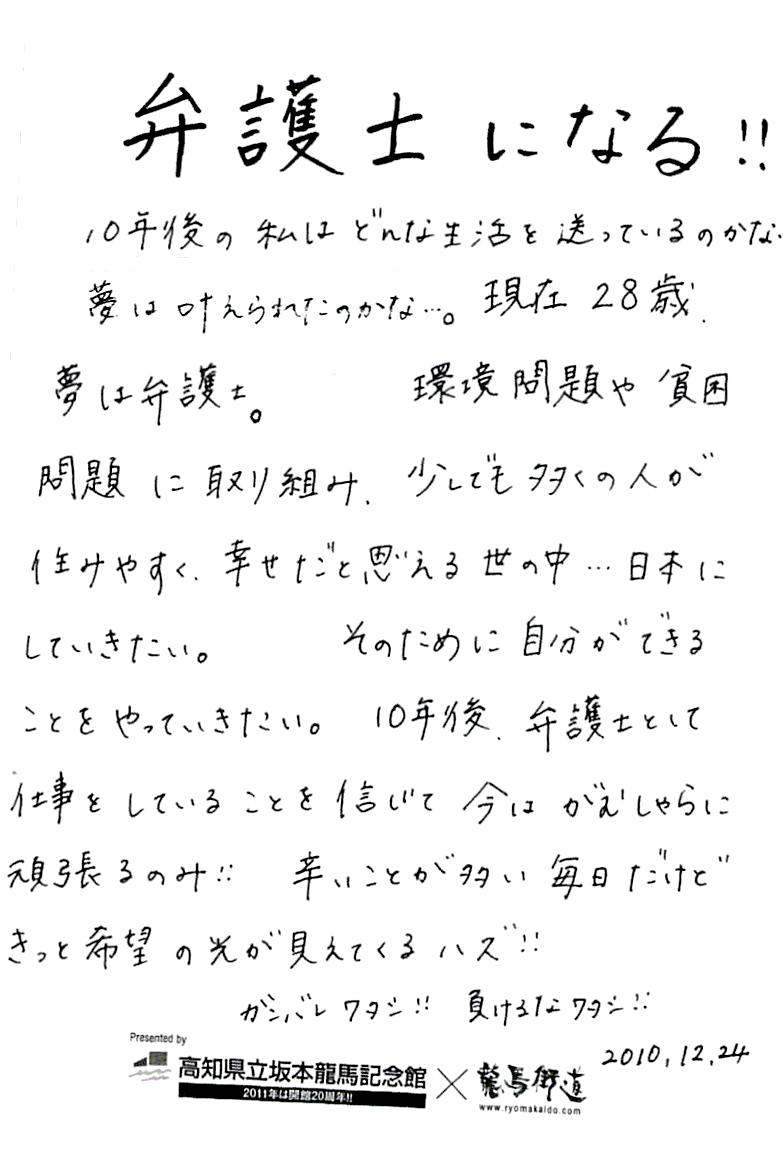 弁護士になる!!
10年後の私はどんな生活を送っているのかな.
夢は叶えられたのかな…。現在28歳.
夢は弁護士。 環境問題や貧困
問題に取り組み、少しでも多くの人が
住みやすく、幸せだと思える世の中…日本に
していきたい。 そのために自分ができる
ことをやっていきたい。 10年後、弁護士として
仕事をしていることを信じて今はがむしゃらに
頑張るのみ!! 辛いことが多い毎日だけど
きっと希望の光が見えてくるハズ!!
ガンバレワタシ!! 負けるなワタシ!!
2010.12.24
Presented by
高知県立坂本龍馬記念館×龍馬街道
2011年は開館20周年!!
www.ryomakaido.com